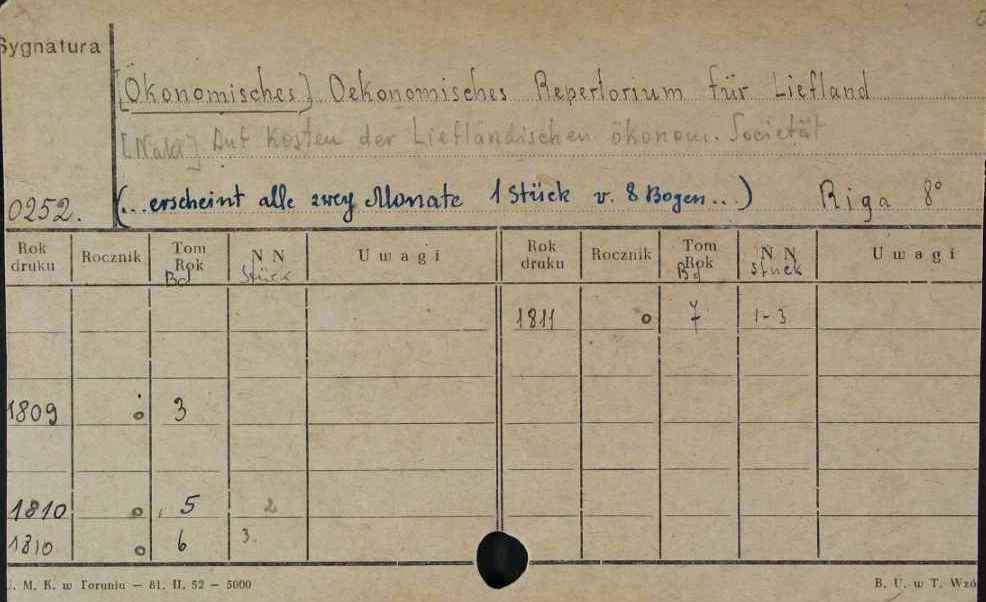 Sygnatura
[Ökonomisches] Oekonomisches Repertorium für Liefland
[Nakł] Auf Kosten der Liefländischen ökonom. Societät
0252. (...erscheint alle zwey Monate 1 Stück v. 8 Bogen...) Riga 8°
Rok druku Rocznik Tom Rok Bd N N Stück Uwagi Rok druku Rocznik Tom Rok Bd N N Stück Uwagi
1811 o 7 1-3
1809 o 3
1810 o 5 2
1810 o 6 3.
U. M. K. w Toruniu — 81. II. 52 — 5000 B. U. w T. Wzó